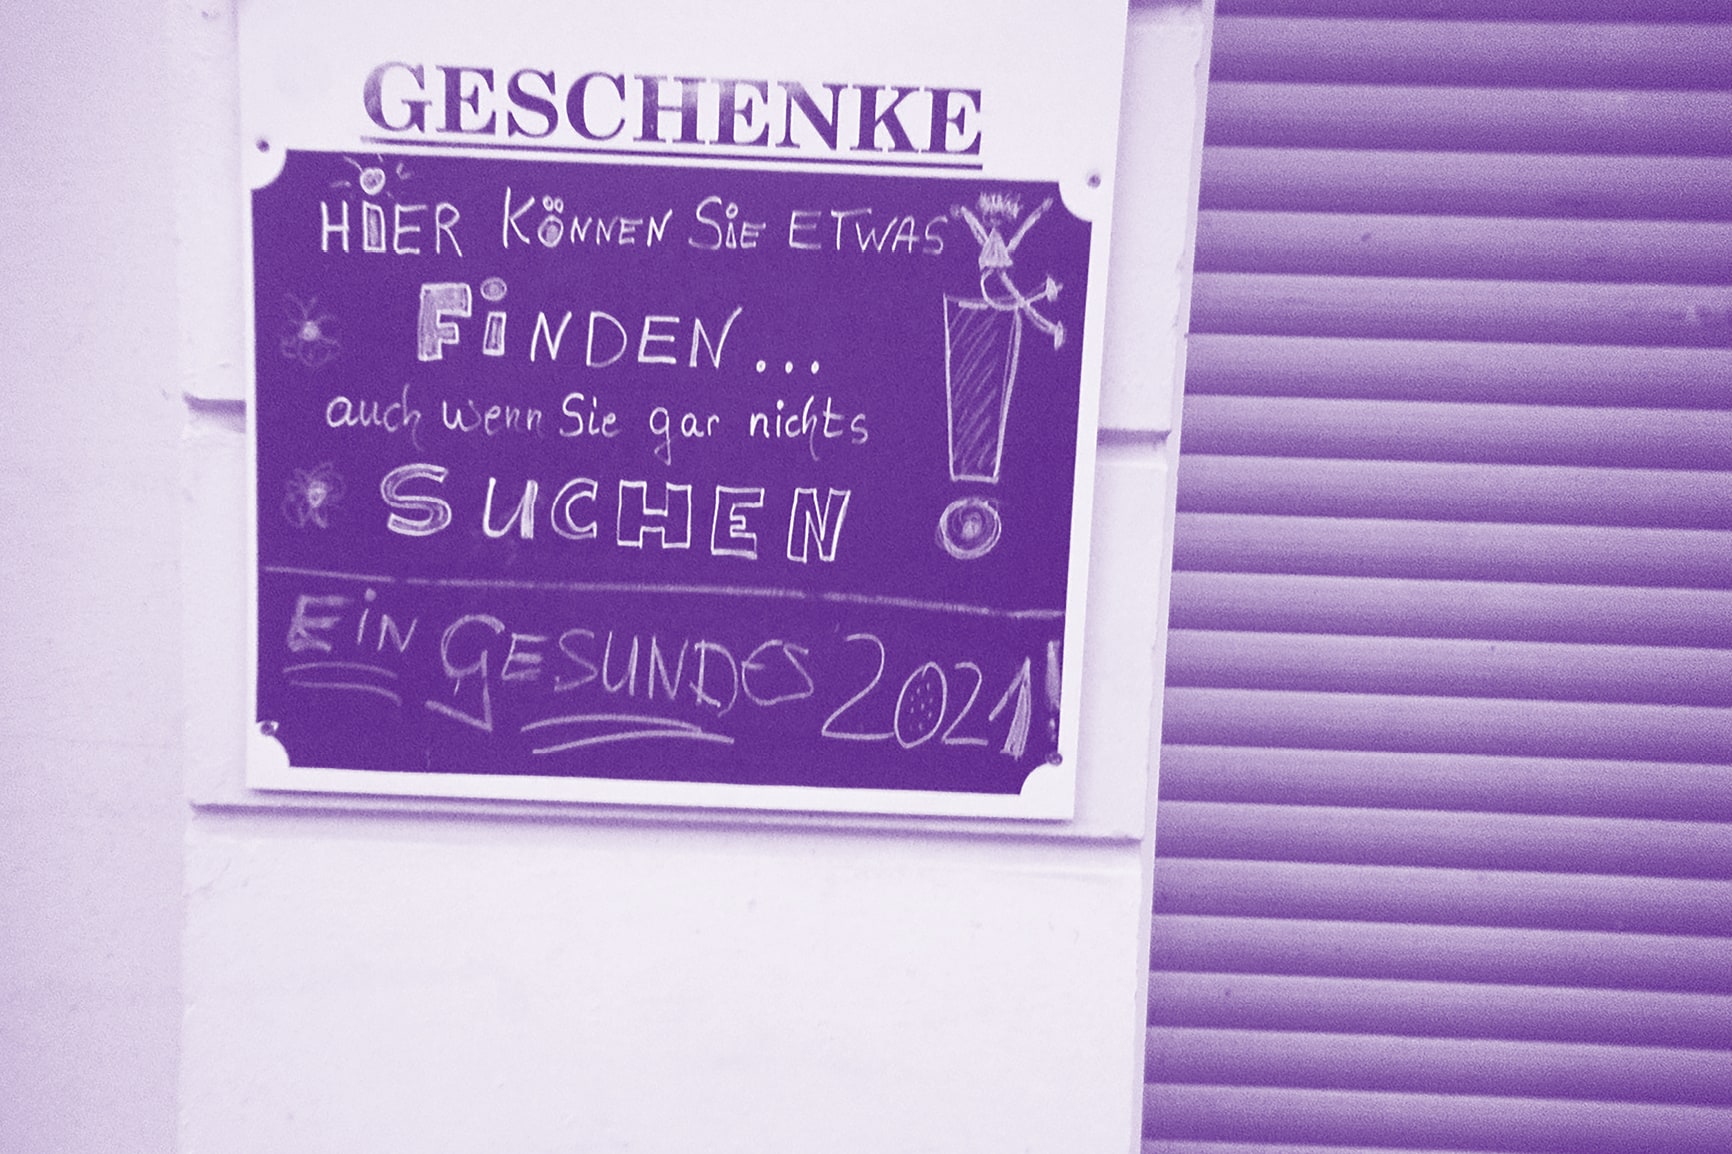 GESCHENKE
HiER KÖNNEN SiE ETWAS
FiNDEN...
auch wenn Sie gar nichts
SUCHEN!
EiN GESUNDES 2021!